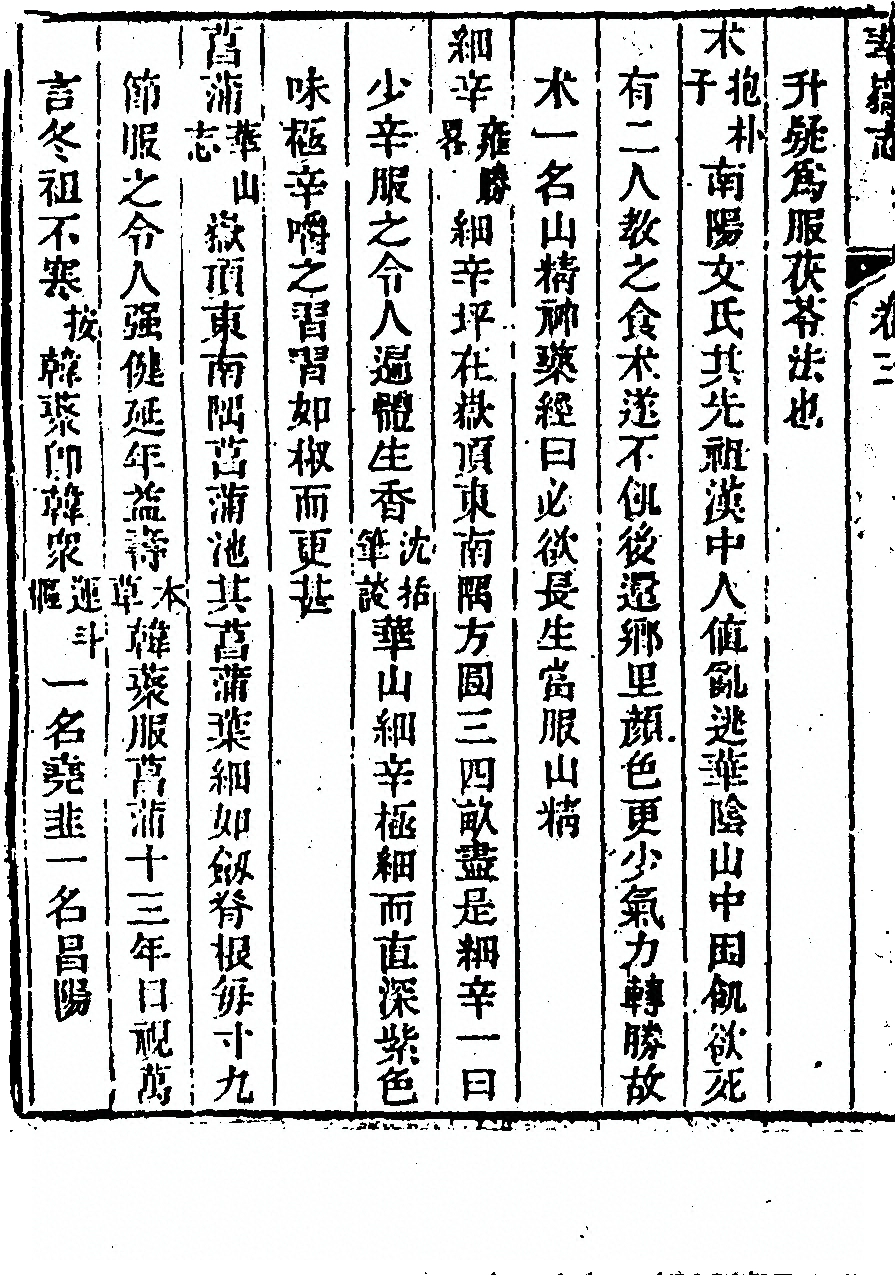 華嶽志 卷三
升疑爲服茯苓法也
术抱朴子南陽文氏其先祖漢中人値亂逃華陰山中困飢欲死
有二人教之食术遂不飢後還鄉里顏色更少氣力轉勝故
术一名山精神藥經曰必欲長生當服山精
細辛雍勝畧細辛坪在嶽頂東南隅方圓三四畝盡是細辛一曰
少辛服之令人遍體生香沈括筆談華山細辛極細而直深紫色
味極辛嚼之習習如椒而更甚
菖蒲華山志嶽頂東南隅菖蒲池其菖蒲葉細如劔脊根每寸九
節服之令人强健延年益壽本草韓藂服菖蒲十三年日視萬
言冬袒不寒按韓藂卽韓衆運斗樞一名堯韭一名昌陽